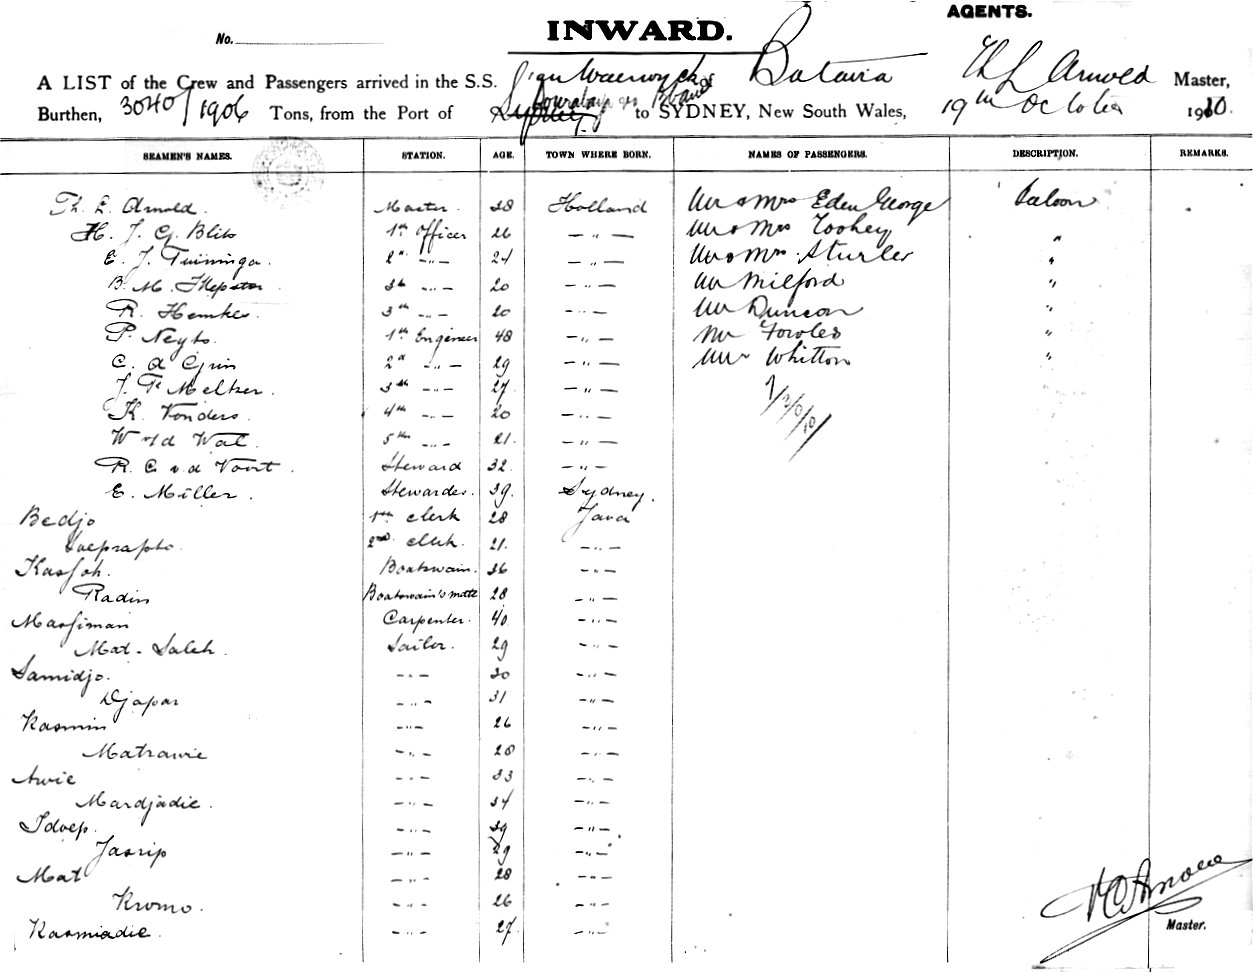 AGENTS.
INWARD.
No.
A LIST of the Crew and Passengers arrived in the S.S. Van Waerwyck of Batavia Th L Arnold Master,
Burthen, 3040/1906 Tons, from the Port of Sourabaya via Sydney to SYDNEY, New South Wales, 19th October 1910.
SEAMEN'S NAMES. STATION. AGE. TOWN WHERE BORN. NAMES OF PASSENGERS. DESCRIPTION. REMARKS.
Th. L. Arnold. Master. 38 Holland Mr & Mrs Eden George Saloon
H. J. G. Blits 1th Officer 26 —„— Mr & Mrs Toohey „
E. J. Tuininga. 2d —„— 24 —„— Mr & Mrs Sturler „
B. M. 3th —„— 20 —„— Mr Milford „
R. Hemkes 3th —„— 20 —„— Mr Duncan „
P. Neyts. 1th Engineer 48 —„— Mr Fowles „
C. A 2d —„— 29 —„— Mr Whitton „
J. F. Meltzer. 3th —„— 27. —„—
K. Vonders. 4th —„— 20 —„—
W v/d Wal. 5th —„— 21. —„—
R. C. v. d Voort. Steward 32. —„—
E. Miller. Stewardes. 39. Sydney.
Bedjo 1th clerk 28 Java
Soeprapto. 2nd clerk. 21. —„—
Kassoh. Boatswain. 36 —„—
Radin Boatswain's mate 28 —„—
Massiman Carpenter. 40 —„—
Mat-Saleh. Sailor. 29 —„—
Samidjo. —„— 30 —„—
Djapar —„— 31 —„—
Kasmin —„— 26 —„—
Matrawie —„— 28 —„—
Awie —„— 33 —„—
Mardjadie. —„— 34 —„—
Idoep. —„— 39 —„—
Jasrip —„— 29 —„—
Mat —„— 28 —„—
Kromo. —„— 26 —„—
Kasmiadie. —„— 27. —„—
Master.